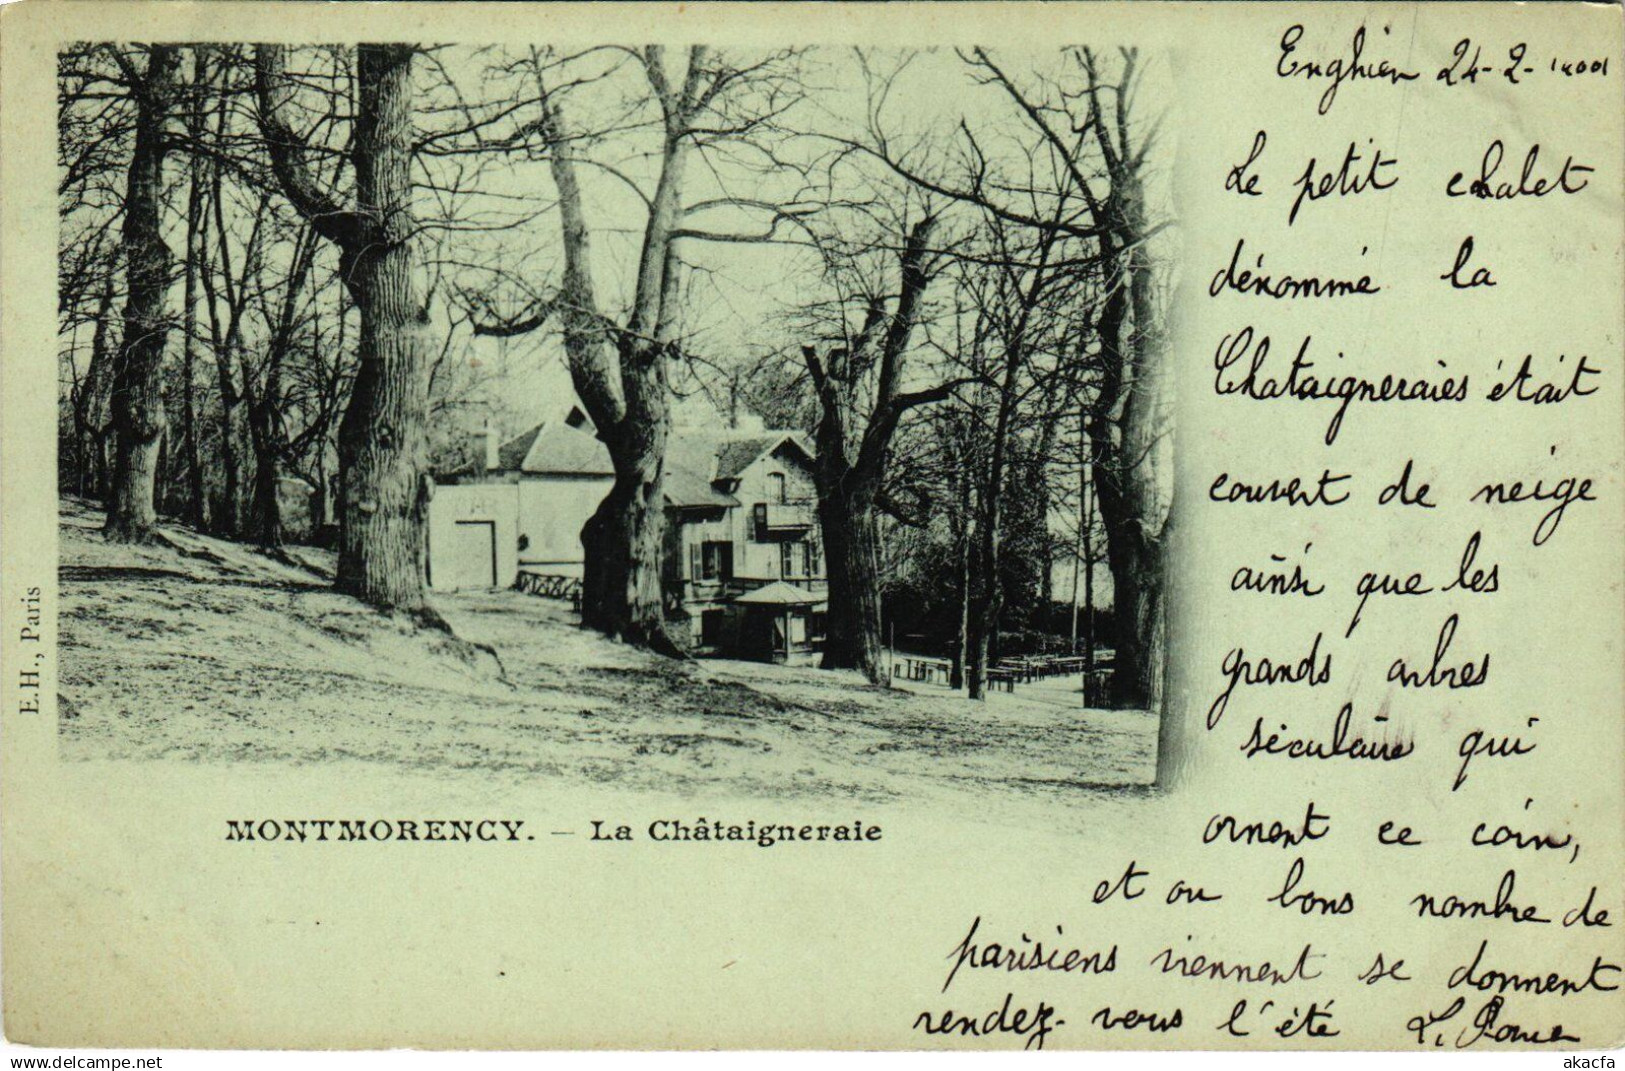 Enghien 24-2-
Le petit chalet
dénommé la
Chataigneraies était
couvert de neige
ainsi que les
grands arbres
séculaire qui
ornent ce coin,
et ou bons nombre de
parisiens viennent se donnent
rendez-vous l'été L.
MONTMORENCY. — La Châtaigneraie
E.H., Paris
akacfa